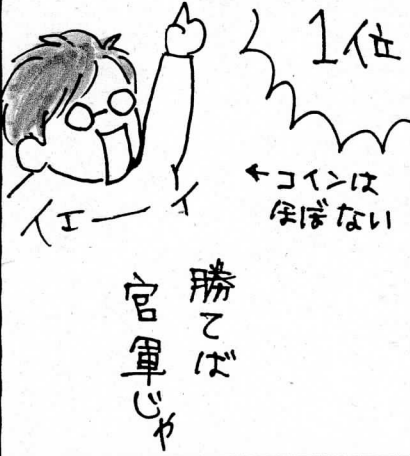 1位
イエーイ
←コインは
ほぼない
勝てば
官軍じゃ